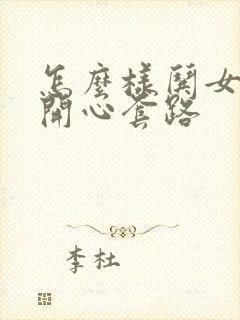 怎麼樣鬨女
開心套路
李杜